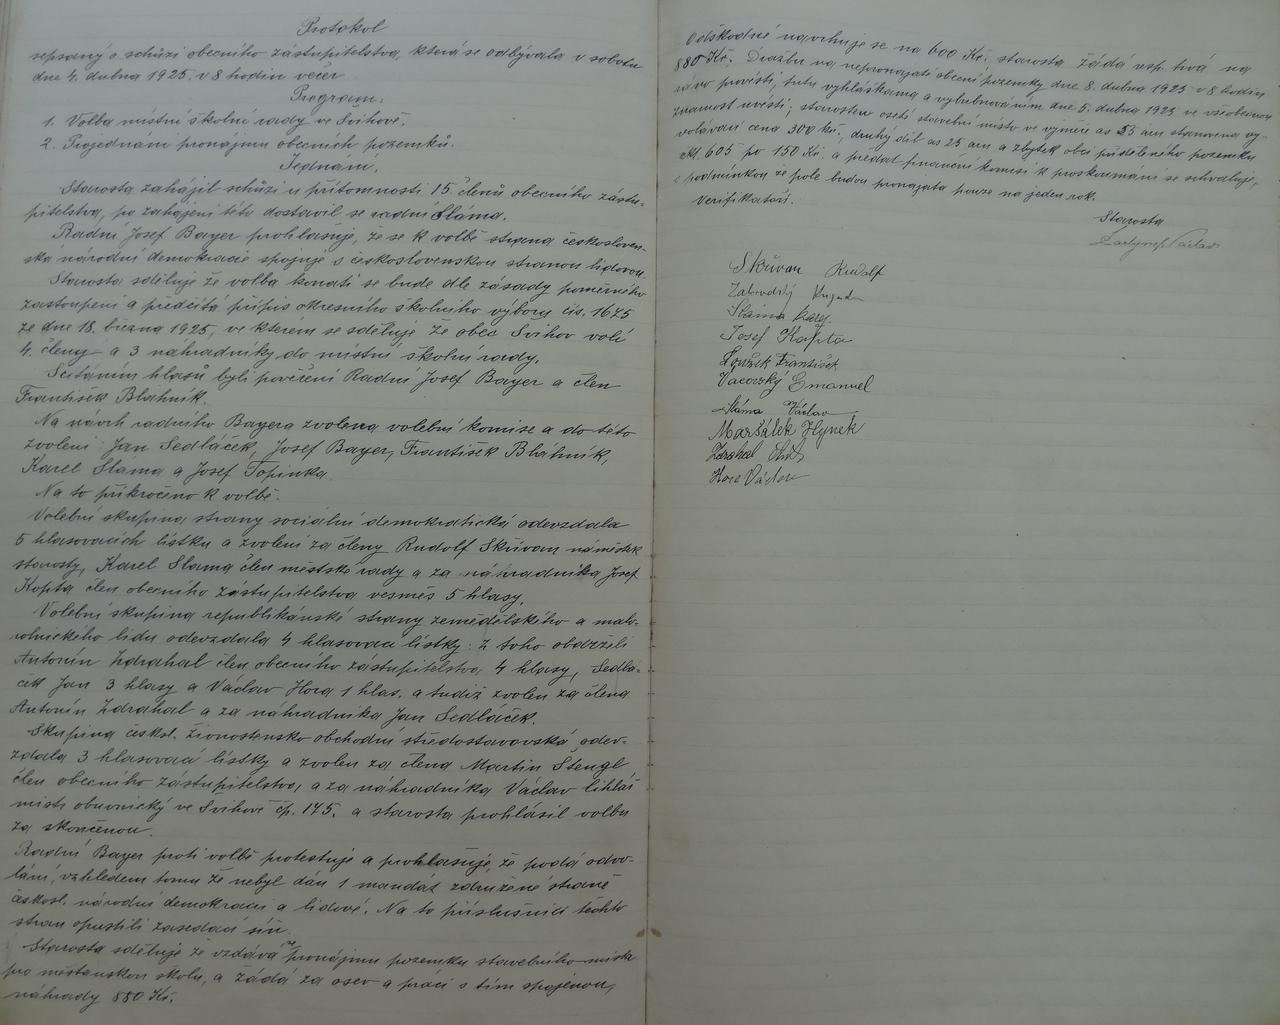 Protokol
sepsaný o schůzi obecního zástupitelstva, která se odbývala v sobotu
dne 4. dubna 1925 v 8 hodin večer
Program:
1. Volba místní školní rady ve Švihově.
2. Projednání pronájmu obecních pozemků.
Jednání.
Starosta zahájil schůzi u přítomnosti 15 členů obecního zástu-
pitelstva, po zahájení této dostavil se radní Sláma.
Radní Josef Bayer prohlašuje, že se k volbě strana českosloven-
ská národní demokracie spojuje s československou stranou lidovou
Starosta sděluje že volba konati se bude dle zásady poměrného
zastoupení a předčítá přípis okresního školního výboru čís. 1675
ze dne 18. března 1925, ve kterém se sděluje že obec Švihov volí
4. členy a 3 náhradníky do místní školní rady.
Sčítáním hlasů byli pověřeni Radní Josef Bayer a člen
František Bláhník.
Na návrh radního Bayera zvolena volební komise a do této
zvoleni: Jan Sedláček, Josef Bayer, František Bláhník,
Karel Sláma a Josef Topinka
Na to přikročeno k volbě.
Volební skupina strany sociální demokratická odevzdala
5 hlasovacích lístků a zvoleni za členy Rudolf Skřivan náměstek
starosty, Karel Sláma člen městské rady a za náhradníka Josef
Kopta člen obecního zástupitelstva vesměs 5 hlasy.
Volební skupina republikánské strany zemědělského a malo-
rolnického lidu odevzdala 4 hlasovací lístky: z toho obdrželi
Antonín Zdrahal člen obecního zástupitelstva 4 hlasy, Sedlá-
ček Jan 3 hlasy a Václav Hora 1 hlas. a tudíž zvolen za člena
Antonín Zdrahal a za náhradníka Jan Sedláček.
Skupina českosl. živnostensko obchodní středostavovská odev-
zdala 3 hlasovací lístky a zvolen za člena Martin Stengl
člen obecního zástupitelstva, a za náhradníka Václav
mistr obuvnický ve Švihově čp. 175. a starosta prohlásil volbu
za skončenou.
Radní Bayer proti volbě protestuje a prohlašuje, že podá odvo-
lání, vzhledem tomu že nebyl dán 1 mandát združené straně
českosl. národní demokracii a lidové. Na to příslušníci těchto
stran opustili zasedací síň.
Starosta sděluje že vzdává se pronájmu pozemku stavebního místa
pro měšťanskou školu, a žádá za osev a práci s tím spojenou,
náhrady 880 Kč.
Odškodné navrhuje se na 600 Kč, starosta žádá resp. trvá na
880 Kč. Dražbu na nepronajaté obecní pozemky dne 8. dubna 1925 v 8 hodin
ráno provésti, tuto vyhláškama a vybubnováním dne 5. dubna 1925 ve všeobecnou
známost uvésti; starostou oseté stavební místo ve výměře as 25 arů stanovena vy-
volávací cena 300 Kč, druhý díl as 25 arů a zbytek obci přiděleného pozemku
čkt. 605 po 150 Kč. a předat finanční komisi k proskoumání se schvaluje,
s podmínkou že pole budou pronajata pouze na jeden rok.
Verifikátoři.
Starosta
Skřivan Rudolf
Sláma Karel
Josef Kopta
František
Vacovský Emanuel
Sláma Václav
Maršálek Hynek
Zdrahal Ant.
Hora Václav